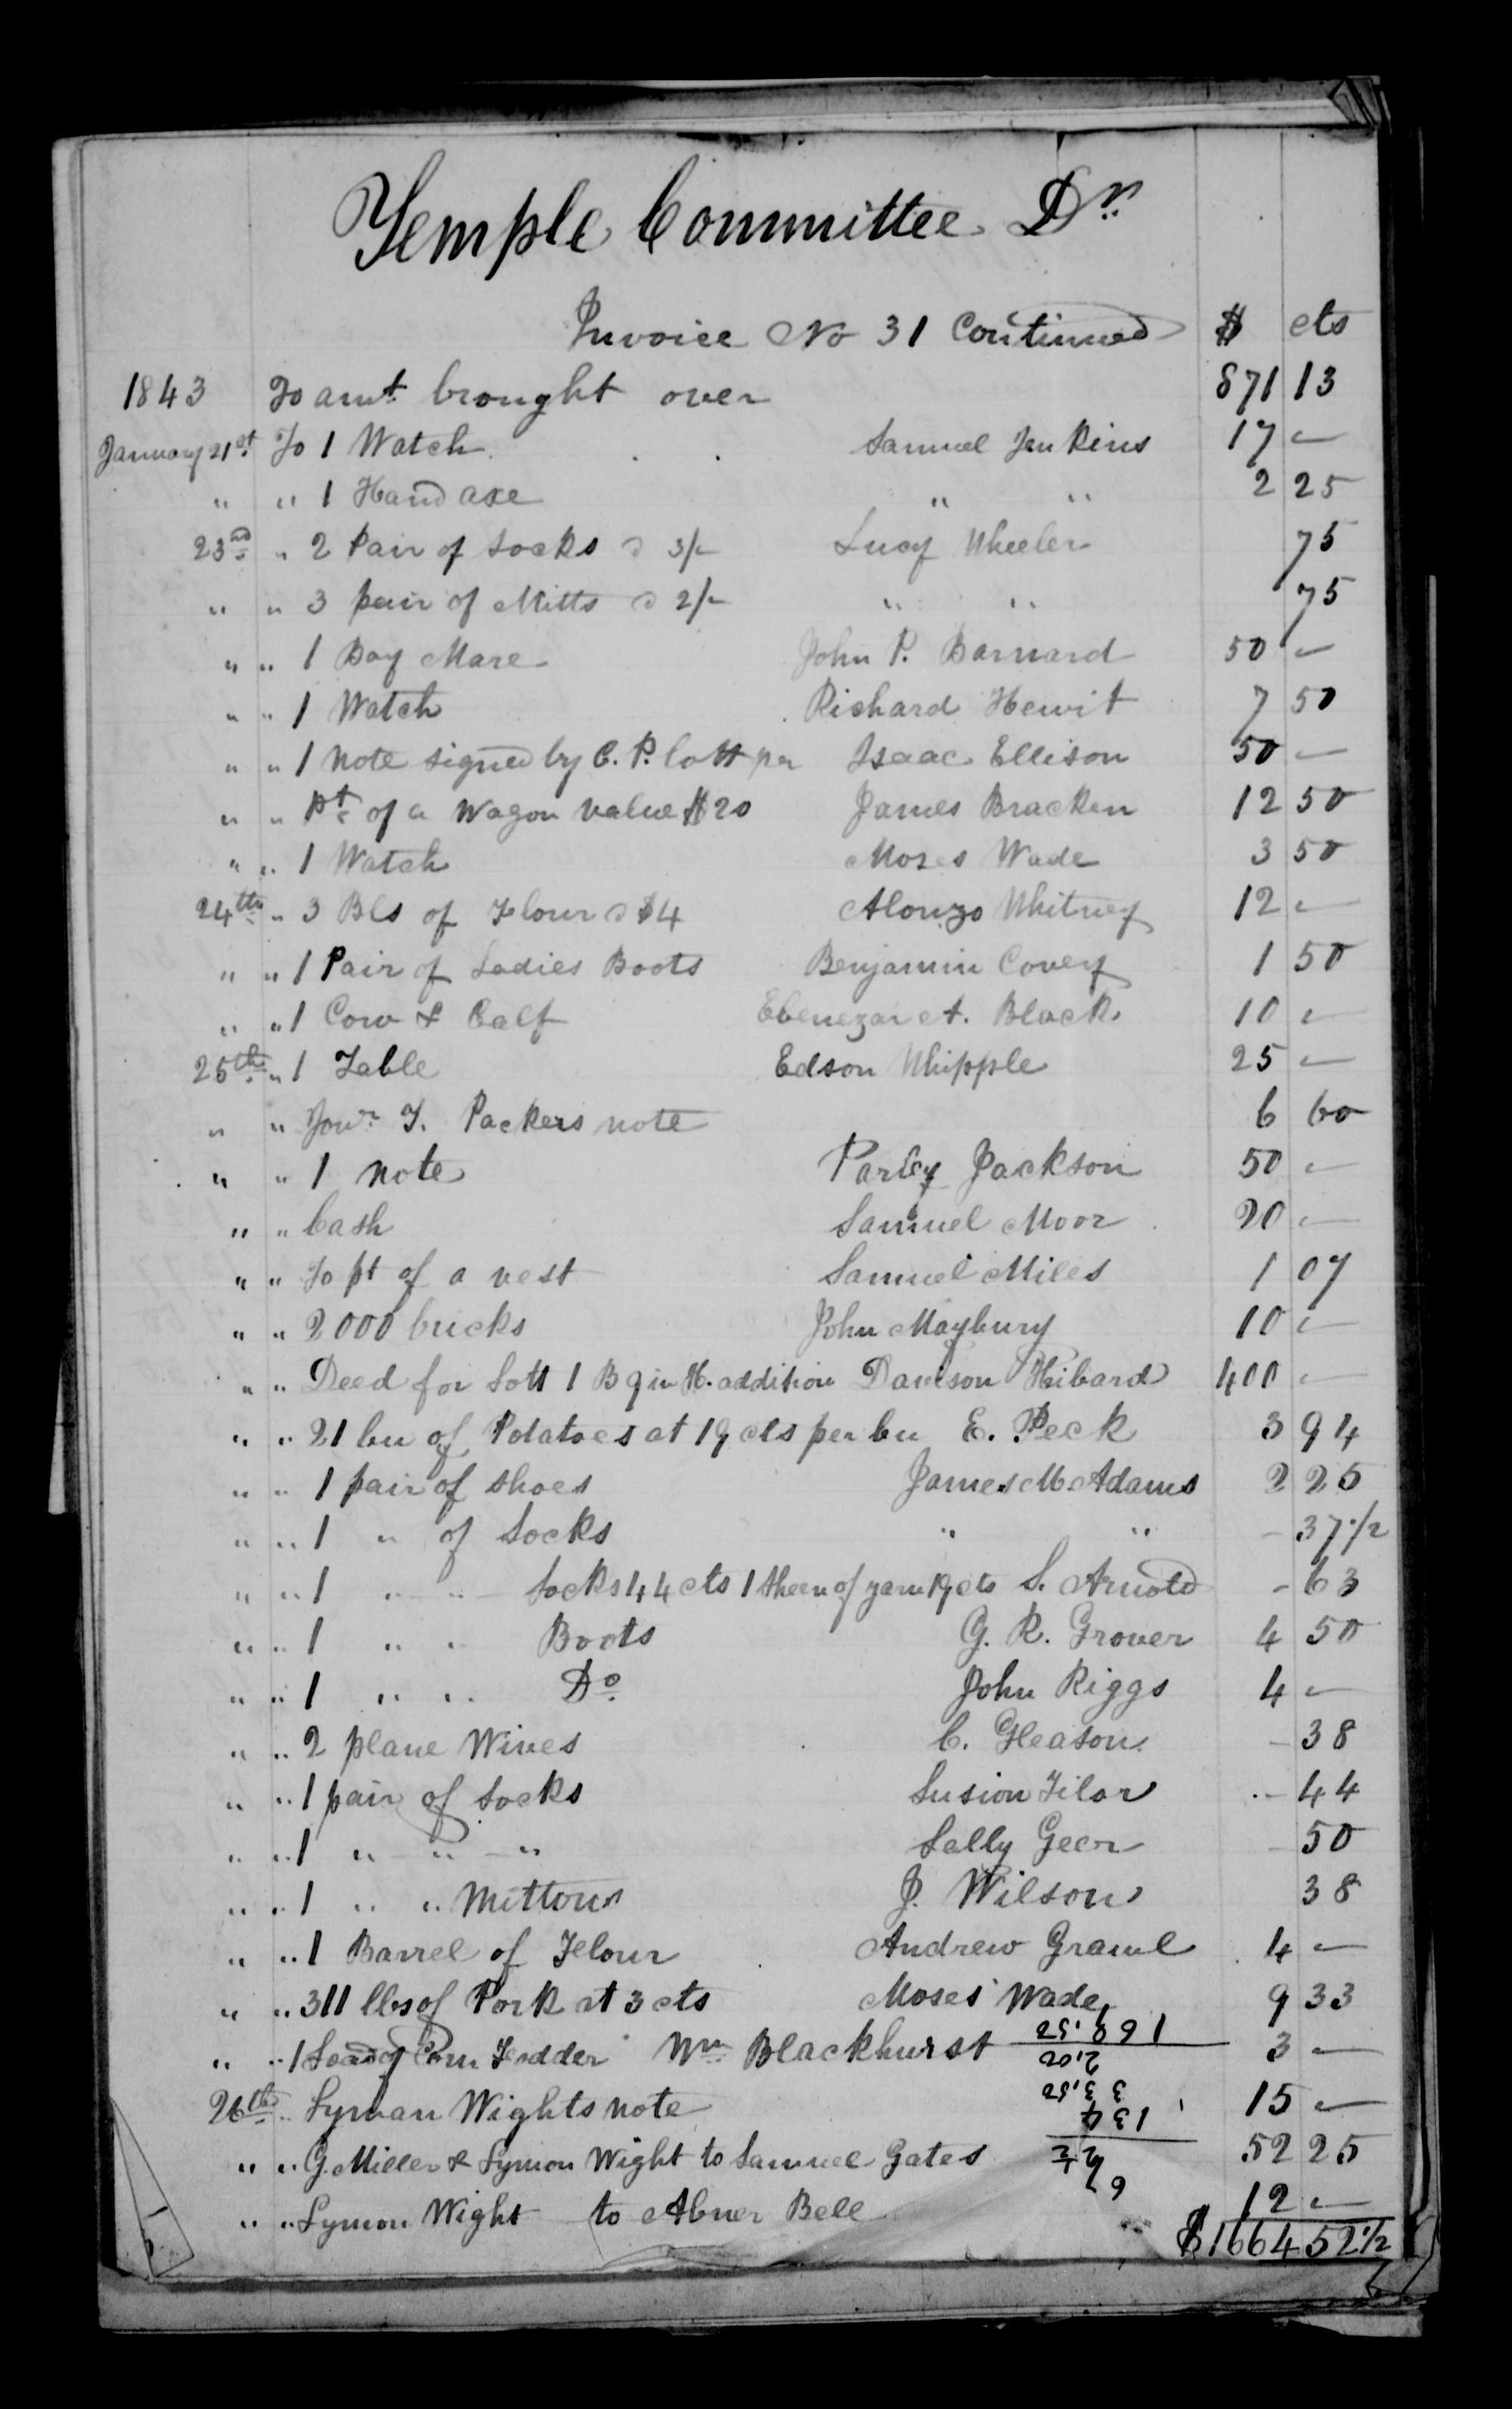 Temple Committee Dr.
Invoice No 31 Continued $ cts
1843 To amt. brought over 871 13
January 21st. To 1 Watch Samuel Jenkins 17 —
" " 1 Hand axe " " 2 25
23rd " 2 Pair of Socks @ 3/- Lucy Wheeler 75
" " 3 pair of Mitts @ 2/- " " 75
" " 1 Bay Mare John P. Barnard 50 —
" " 1 Watch Richard Hewit 7 50
" " 1 Note signed by C. P. Lott per Isaac Ellison 50 —
" " Pt. of a Wagon value $20 James Bracken 12 50
" " 1 Watch Moses Wade 3 50
24th " 3 Bls of Flour @ $4 Alonzo Whitney 12 —
" " 1 Pair of Ladies Boots Benjamin Covey 1 50
" " 1 Cow & Calf Ebenezar A. Black 10 —
25th " 1 Table Edson Whipple 25 —
" " T. Packers note 6 60
" " 1 note Parley Jackson 50 —
" " Cash Samuel Moor 20 —
" " To pt of a vest Samuel Miles 1 07
" " 2000 bricks John Maybury 10 —
" " Deed for Lott 1 B 9 in H. addition Davison Hibard 400 —
" " 21 bu of Potatoes at 19 cts per bu E. Peck 3 94
" " 1 pair of shoes James McAdams 2 25
" " 1 " of Socks " " - 37 1/2
" " 1 " " Socks 44 cts 1 skein of yarn 19 cts S. Arnold - 63
" " 1 " " Boots G. R. Grover 4 50
" " 1 " " Do. John Riggs 4 —
" " 2 plane Wires C. Gleason - 38
" " 1 pair of Socks Susion - 44
" " 1 " " " Sally Geer - 50
" " 1 " " Mittons J. Wilson 38
" " 1 Barrel of Flour Andrew 4 —
" " 311 lbs of Pork at 3 cts Moses Wade 9 33
" " 1 Load of Corn Fodder Wm Blackhurst 3 —
26th " Lyman Wights note 15 —
" " G. Miller & Lymon Wight to Samuel Gates 52 25
" " Lymon Wight to Abner Bell 12 —
$1664 52 1/2
67 1/2
134
33,50
2,02
168,52